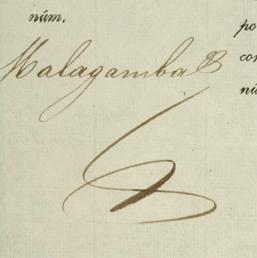 núm.
po
Malagamba
con
ni